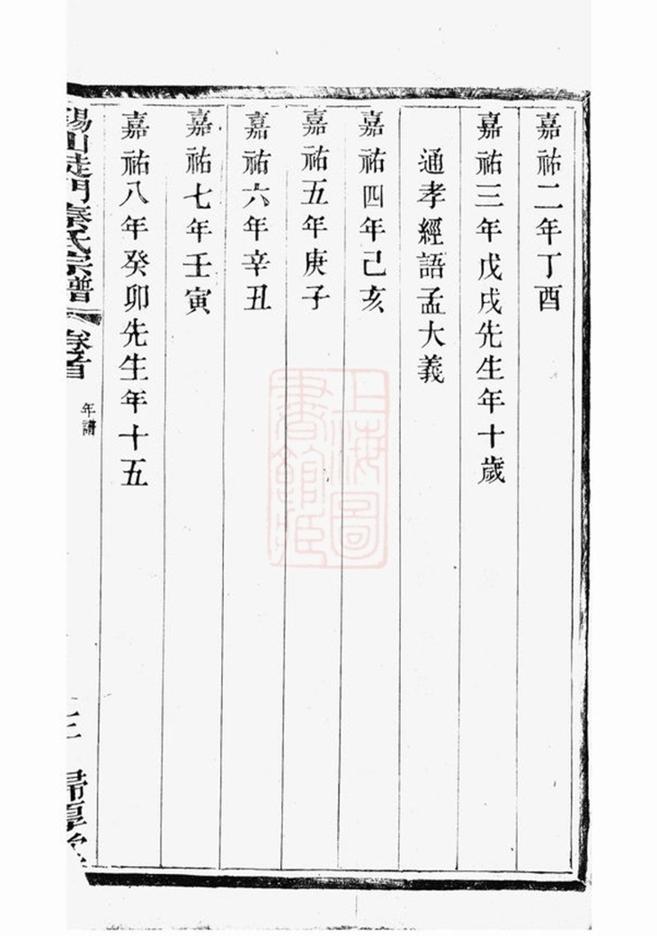 嘉祐二年丁酉
嘉祐三年戊戌先生年十歲
通孝經語孟大義
嘉祐四年己亥
嘉祐五年庚子
嘉祐六年辛丑
嘉祐七年壬寅
嘉祐八年癸卯先生年十五
錫山徒門秦氏宗譜 卷首 年譜 歸厚堂
上海圖書館藏